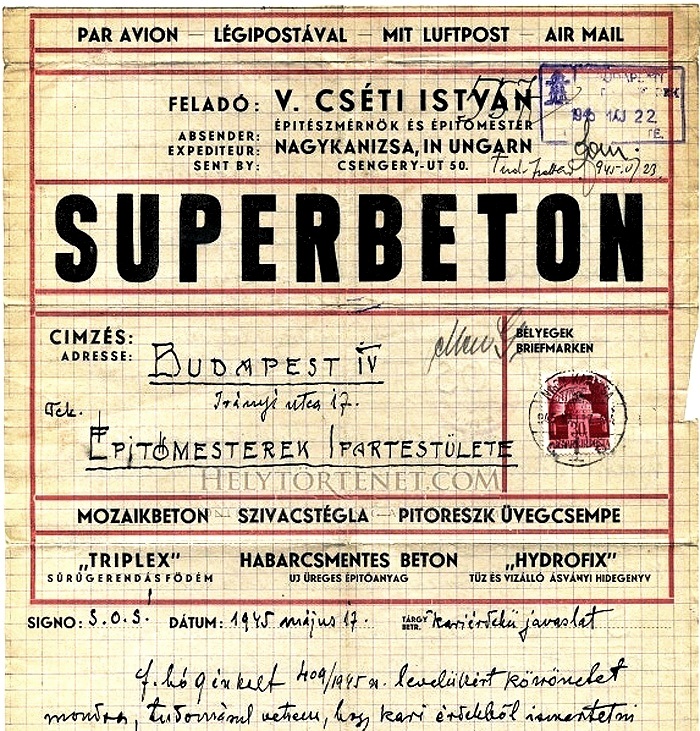 PAR AVION — LÉGIPOSTÁVAL — MIT LUFTPOST — AIR MAIL
FELADÓ: V. CSÉTI ISTVÁN
ÉPITÉSZMÉRNÖK ÉS ÉPITŐMESTER
ABSENDER:
EXPEDITEUR: NAGYKANIZSA, IN UNGARN
SENT BY: CSENGERY-UT 50.
1945 MÁJ 22
945. V. 23.
SUPERBETON
CIMZÉS:
ADRESSE:
BUDAPEST IV
Irányi utca 17.
Tek.
ÉPITŐMESTEREK IPARTESTÜLETE
BÉLYEGEK
BRIEFMARKEN
30
HELYTÖRTENET.COM
MOZAIKBETON SZIVACSTÉGLA PITORESZK ÜVEGCSEMPE
„TRIPLEX" HABARCSMENTES BETON „HYDROFIX"
SŰRŰGERENDÁS FÖDÉM UJ ÜREGES ÉPITŐANYAG TŰZ ÉS VIZÁLLÓ ÁSVÁNYI HIDEGENYV
SIGNO: S.O.S. DÁTUM: 1945 május 17. TÁRGY BETR. kariérdekü javaslat
f. hó 9 én kelt 409/1945 n. levelükért köszönetet
mondva, tudomásul vettem, hogy kari érdekből ismertetni